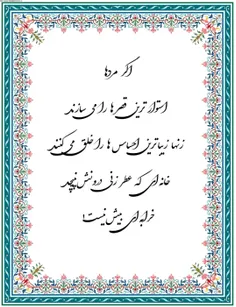 اگر مردها
استوارترین قصرها را می سازند
زنها زیباترین احساس ها را خلق می کنند
خانه ای که عطر زنی درونش نپیچد
خرابه ای بیش نیست!